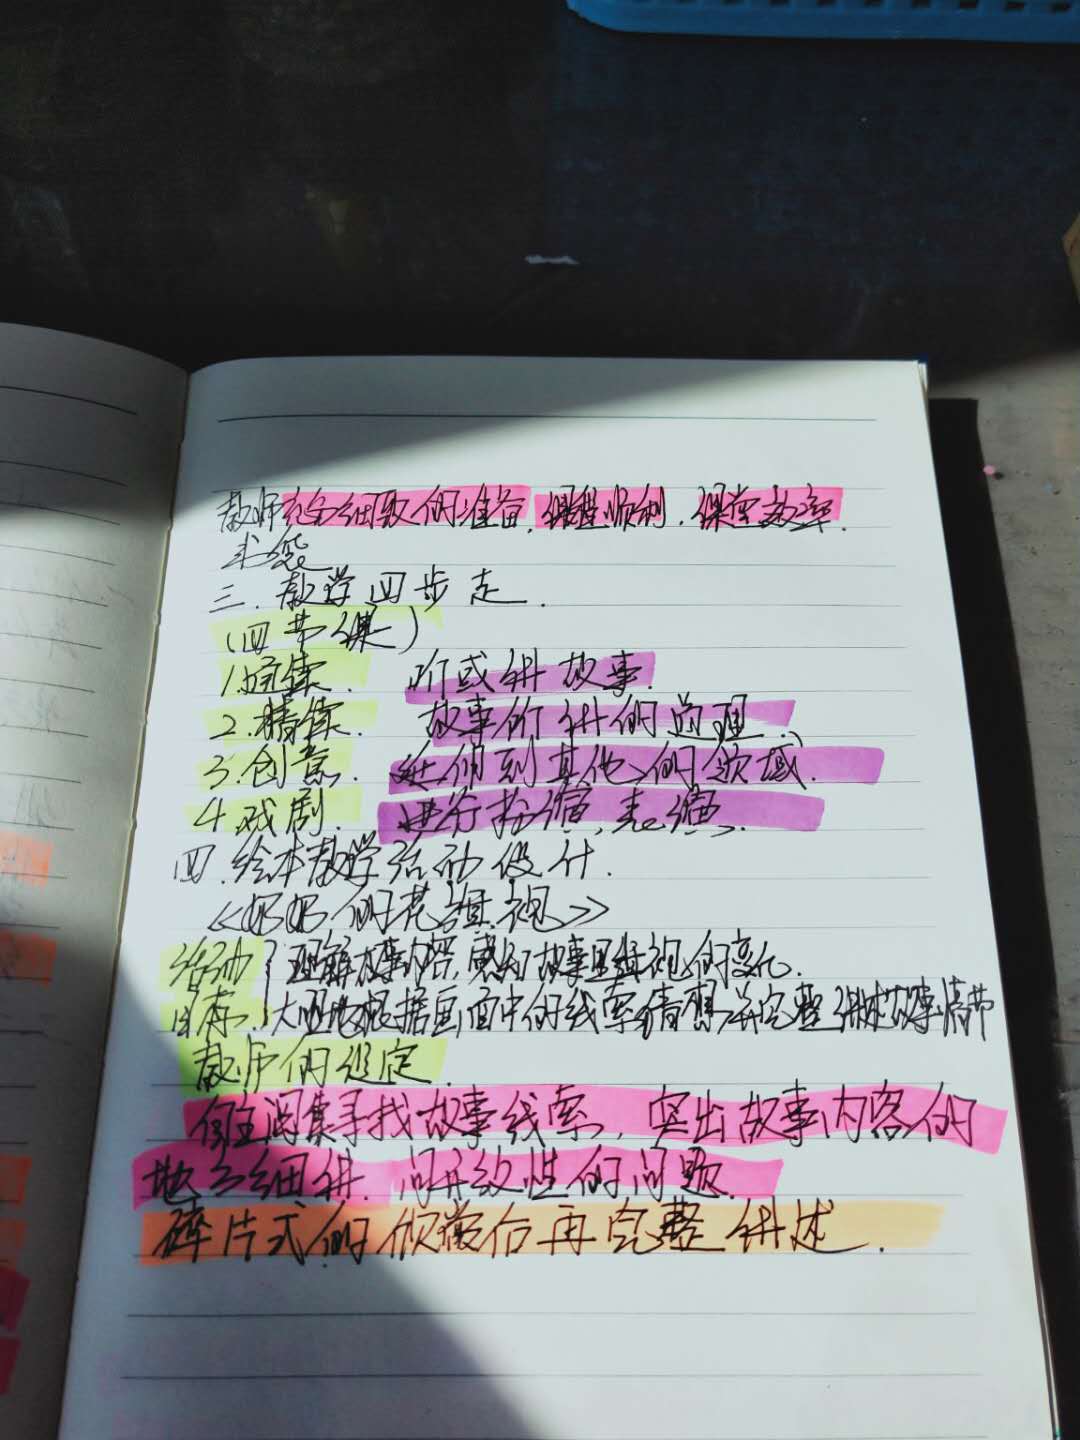 教师完全细致的准备,课程顺利,课堂效率.
三.教学四步走.
(四节课)
1.通读. 听或讲故事.
2.精读. 故事所讲的道理.
3.创意. 延伸到其他的领域.
4.戏剧. 进行扮演、表演.
四.绘本教学活动设计.
《奶奶的花园视》
活动 理解故事内容,感知故事里视的变化.
目标. 大胆地根据画面中的线索猜想,并完整讲述故事情节
教师的设定.
阅读寻找故事线索,突出故事内容的
地方细讲.问开放性的问题.
碎片式的欣赏后再完整讲述.